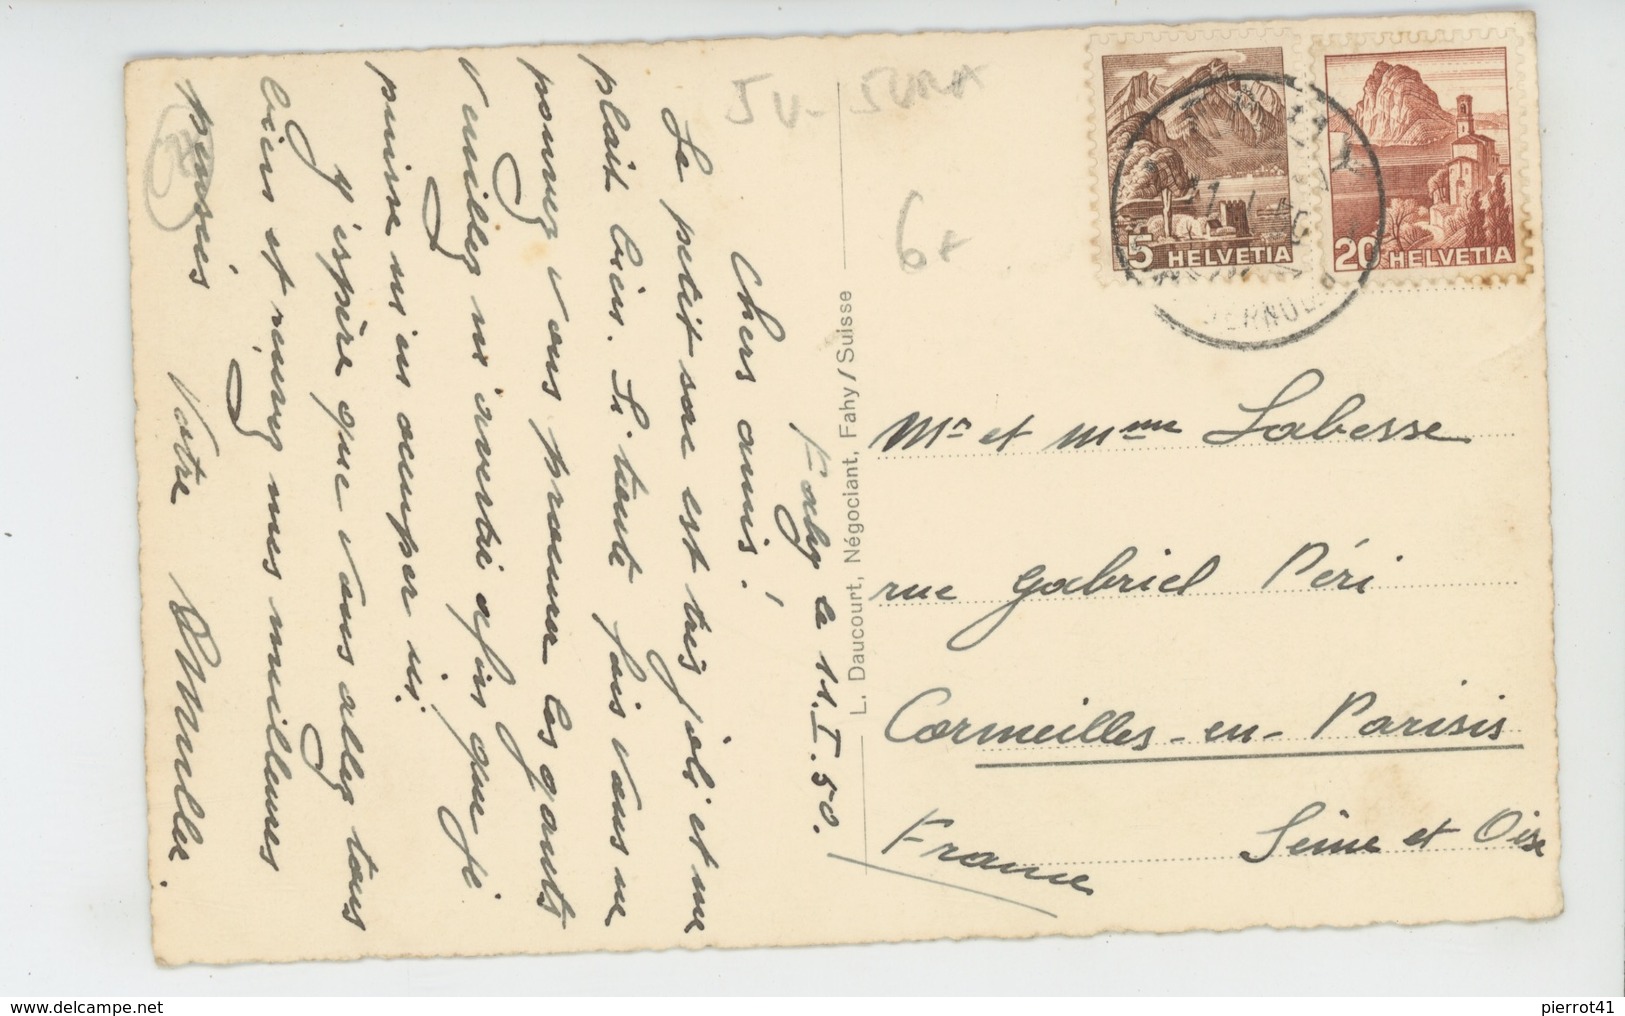 Fahy le 11.I.50.
Chers amis!
Le petit sac est très joli et me
plait bien. Si toute fois vous ne
pouvez vous procurer les gants
Veuillez m'avertir afin que je
puisse m'en occuper ici.
J'espère que vous allez tous
bien et recevez mes meilleures
pensées Votre
L. Daucourt, Négociant, Fahy/Suisse
JU - JURA
6+
5 HELVETIA
20 HELVETIA
Mr et Mme Labesse
rue Gabriel Péri
Cormeilles-en-Parisis
Seine et Oise
France
pierrot41